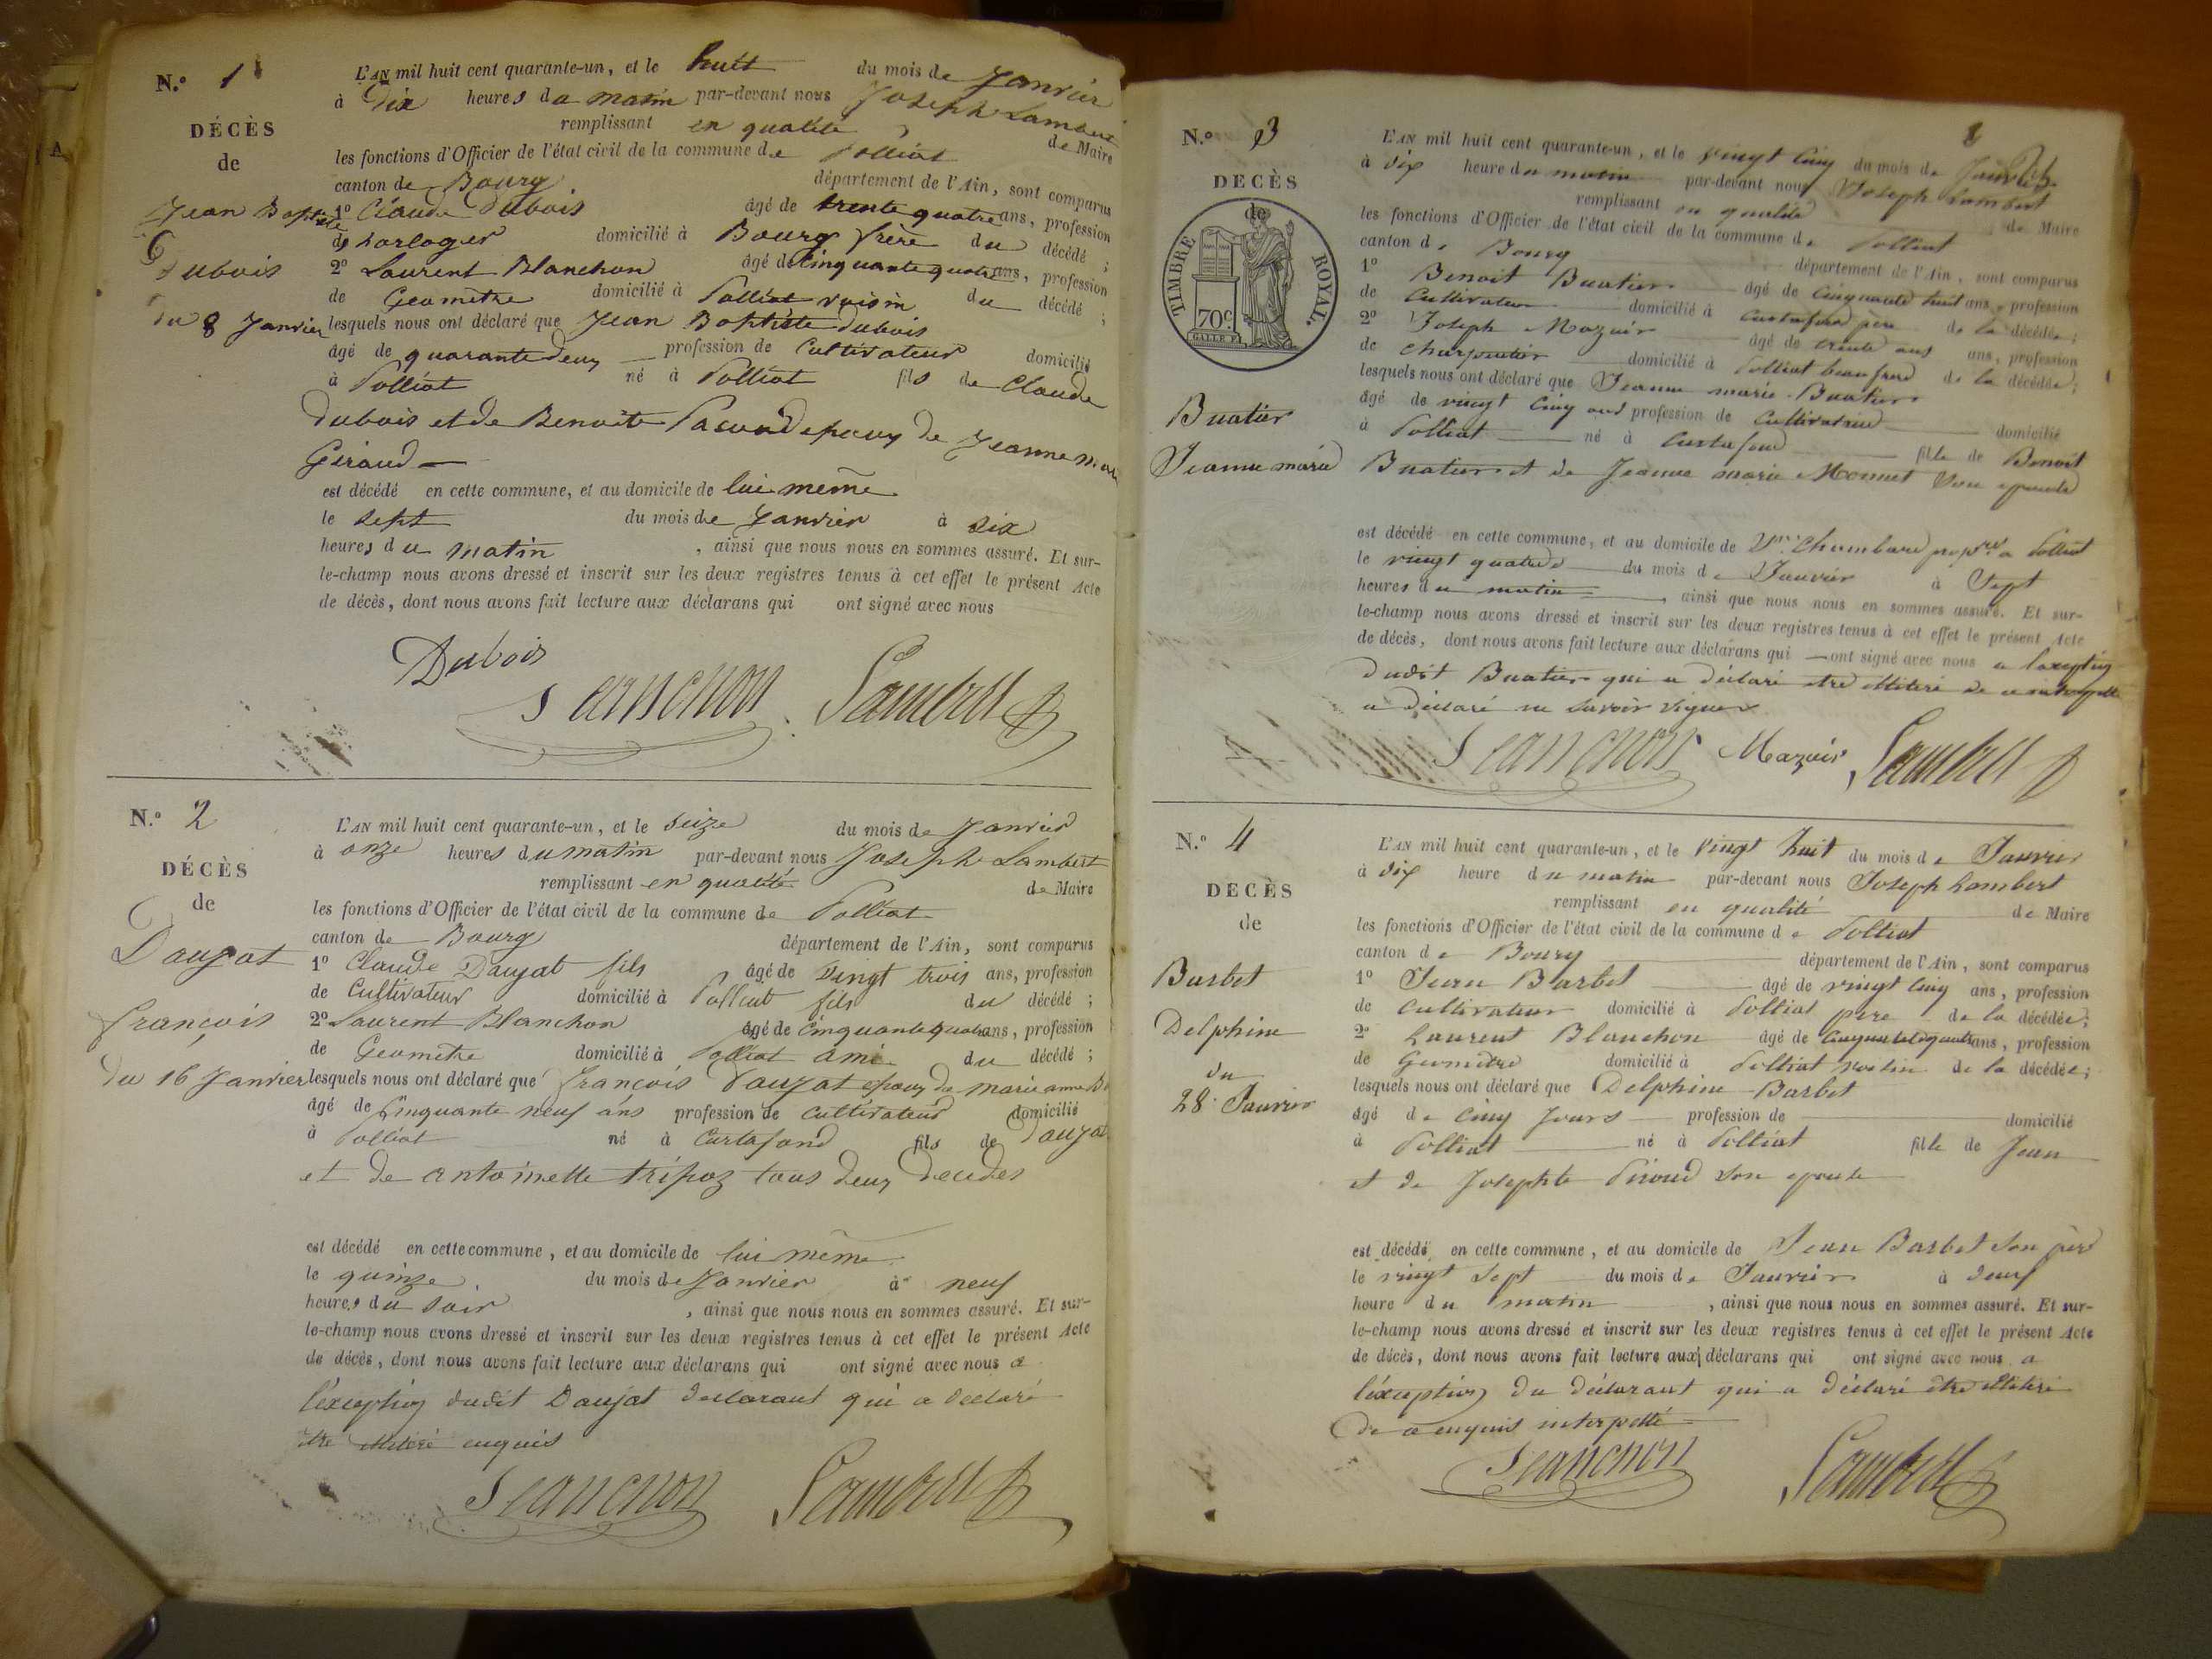 N.º 1
DÉCÈS
de
Jean Baptiste
Dubois
du 8 Janvier
L'AN mil huit cent quarante-un, et le huit du mois de Janvier
à Dix heures du matin par-devant nous Joseph Lambert
remplissant en qualité de Maire
les fonctions d'Officier de l'état civil de la commune de Polliat
canton de Bourg département de l'Ain, sont comparus
1º Claude Dubois âgé de trente quatre ans, profession
de horloger domicilié à Bourg frère du décédé ;
2º Laurent Blanchon âgé de cinquante quatre ans, profession
de Geomètre domicilié à Polliat voisin du décédé ;
lesquels nous ont déclaré que Jean Baptiste dubois
âgé de quarante deux profession de Cultivateur domicilié
à Polliat né à Polliat fils de Claude
dubois et de Benoite epoux de Jeanne
Giraud
est décédé en cette commune, et au domicile de lui même
le sept du mois de Janvier à six
heures du matin , ainsi que nous nous en sommes assuré. Et sur-
le-champ nous avons dressé et inscrit sur les deux registres tenus à cet effet le présent Acte
de décès, dont nous avons fait lecture aux déclarans qui ont signé avec nous
Dubois
Blanchon Lambert
N.º 2
DÉCÈS
de
Daujat
françois
du 16 Janvier
L'AN mil huit cent quarante-un, et le seize du mois de Janvier
à onze heures du matin par-devant nous Joseph Lambert
remplissant en qualité de Maire
les fonctions d'Officier de l'état civil de la commune de Polliat
canton de Bourg département de l'Ain, sont comparus
1º Claude Daujat fils âgé de vingt trois ans, profession
de Cultivateur domicilié à Polliat fils du décédé ;
2º Laurent Blanchon âgé de cinquante quatre ans, profession
de Geomètre domicilié à Polliat ami du décédé ;
lesquels nous ont déclaré que françois Daujat epoux de marie anne
âgé de cinquante neuf ans profession de cultivateur domicilié
à Polliat né à Curtafond fils de Daujat
et de antoinette tripoz tous deux decedes
est décédé en cette commune, et au domicile de lui même
le quinze du mois de Janvier à neuf
heures du soir , ainsi que nous nous en sommes assuré. Et sur-
le-champ nous avons dressé et inscrit sur les deux registres tenus à cet effet le présent Acte
de décès, dont nous avons fait lecture aux déclarans qui ont signé avec nous a
l'exception dudit Daujat declarant qui a declaré
être illiteré enquis
Blanchon Lambert
N.º 3
DECÈS
de
TIMBRE ROYAL.
70c
Buatier
Jeanne marie
L'AN mil huit cent quarante-un, et le vingt cinq du mois de Janvier
à dix heure du matin par-devant nous Joseph Lambert
remplissant en qualité de Maire
les fonctions d'Officier de l'état civil de la commune de Polliat
canton de Bourg département de l'Ain, sont comparus
1º Benoit Buatier âgé de cinquante huit ans, profession
de Cultivateur domicilié à Curtafond père de la décédée ;
2º Joseph Mazuir âgé de trente ans ans, profession
de Charpentier domicilié à Polliat beau frere de la décédée ;
lesquels nous ont déclaré que Jeanne marie Buatier
âgé de vingt cinq ans profession de Cultivatrice domicilié
à Polliat né à Curtafond fille de Benoit
Buatier et de Jeanne marie Monnet son epouse
est décédé en cette commune, et au domicile de Chambard a Polliat
le vingt quatre du mois de Janvier à Sept
heures du matin , ainsi que nous nous en sommes assuré. Et sur-
le-champ nous avons dressé et inscrit sur les deux registres tenus à cet effet le présent Acte
de décès, dont nous avons fait lecture aux déclarans qui ont signé avec nous a l'exception
dudit Buatier qui a déclaré etre illiteré de ce
a déclaré ne savoir signer
Blanchon Mazuir Lambert
N.º 4
DECÈS
de
Barbet
Delphine
du
28 Janvier
L'AN mil huit cent quarante-un, et le vingt huit du mois de Janvier
à dix heure du matin par-devant nous Joseph Lambert
remplissant en qualité de Maire
les fonctions d'Officier de l'état civil de la commune de Polliat
canton de Bourg département de l'Ain, sont comparus
1º Jean Barbet âgé de vingt cinq ans, profession
de cultivateur domicilié à Polliat père de la décédée ;
2º Laurent Blanchon âgé de cinquante quatre ans, profession
de Geomètre domicilié à Polliat voisin de la décédée ;
lesquels nous ont déclaré que Delphine Barbet
âgé de cinq jours profession de domicilié
à Polliat né à Polliat fille de Jean
et de Josephte Piroud son epouse
est décédé en cette commune, et au domicile de Jean Barbet son père
le vingt sept du mois de Janvier à neuf
heure du matin , ainsi que nous nous en sommes assuré. Et sur-
le-champ nous avons dressé et inscrit sur les deux registres tenus à cet effet le présent Acte
de décès, dont nous avons fait lecture aux déclarans qui ont signé avec nous a
l'exception du déclarant qui a déclaré être illiteré
de ce enquis interpellé
Blanchon Lambert